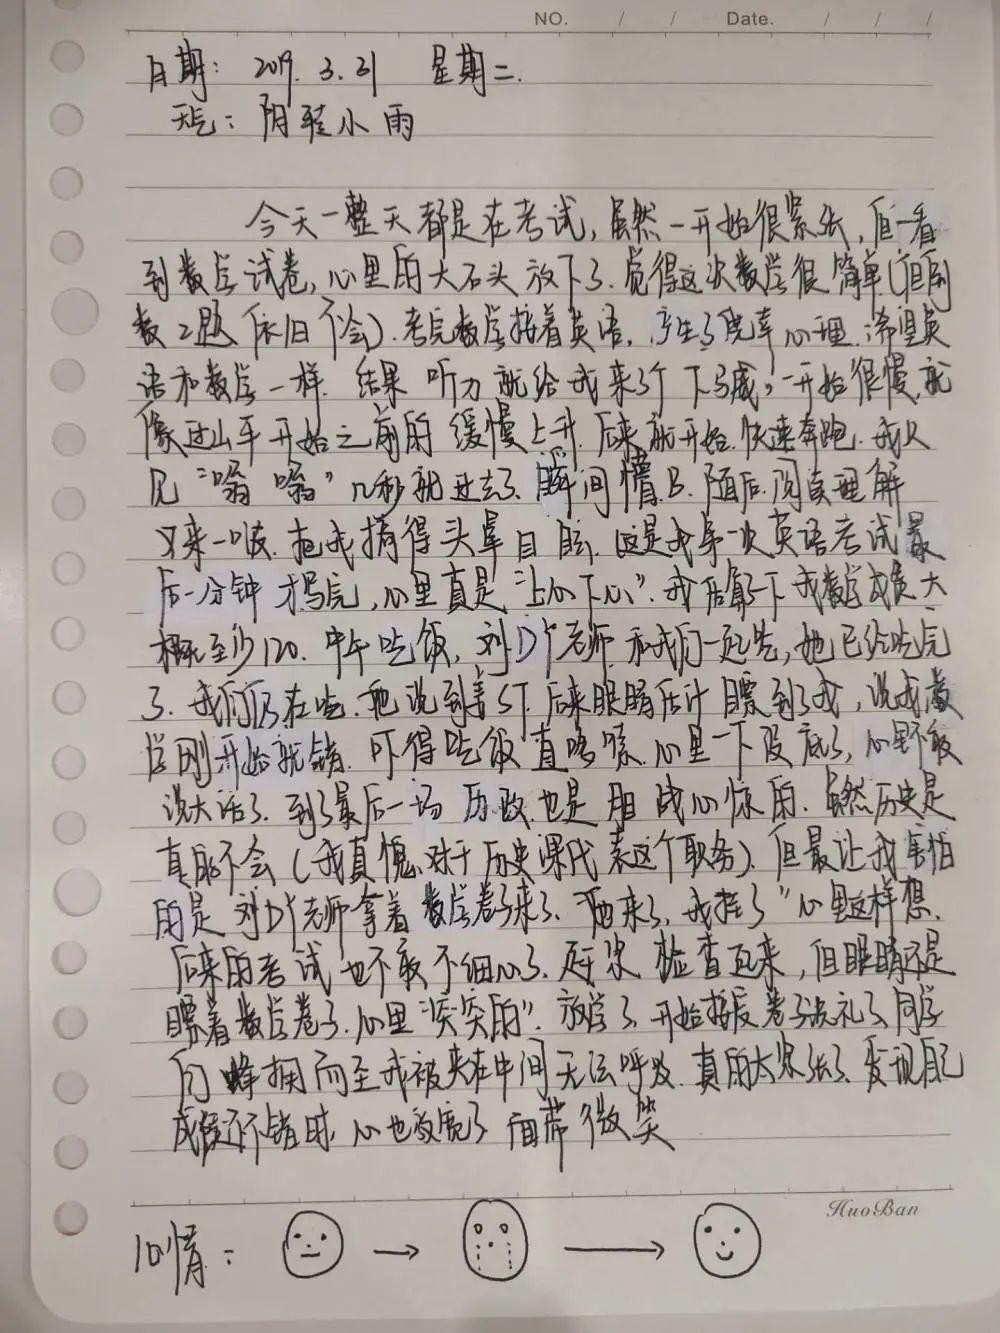 NO. / / Date. / / /
日期: 2019.3.21 星期二.
天气: 阴转小雨
今天一整天都是在考试,虽然一开始很紧张,但一看
到数学试卷,心里的大石头放下了.觉得这次数学很简单(但倒
数2题依旧不会).考完数学接着英语,产生了侥幸心理,希望英
语和数学一样.结果听力就给我来了个下马威,一开始很慢,就
像过山车开始之前的缓慢上升.后来就开始快速奔跑.我只
见“嗡嗡”几秒就过去了.瞬间懵B.随后阅读理解
又来一波.把我搞得头晕目眩.这是我第一次英语考试最
后一分钟才写完,心里真是“忐忑”.我后算了下我数学成绩大
概至少120.中午吃饭,刘DY老师和我们一起吃,她已经吃完
了.我们仍在吃.她说到着ST.后来眼睛估计瞟到了我,说我数
学刚开始就错.吓得吃饭直哆嗦.心里一下没底了,心里不敢
说大话了.到了最后一场历政也是胆战心惊的.虽然历史是
真的不会(我真愧对于历史课代表这个职务).但最让我害怕
的是刘DY老师拿着数学卷子来了.“她来了,我挂了”心里这样想.
后来的考试也不敢不细心了.逐次检查起来,但眼睛还是
瞟着数学卷子.心里“突突的”.放学了.开始接反卷子洗礼了.同学
们蜂拥而至我被夹在中间无法呼吸.真的太紧张了.发现自己
成绩还不错时,心也放宽了 面带微笑
HuoBan
心情: